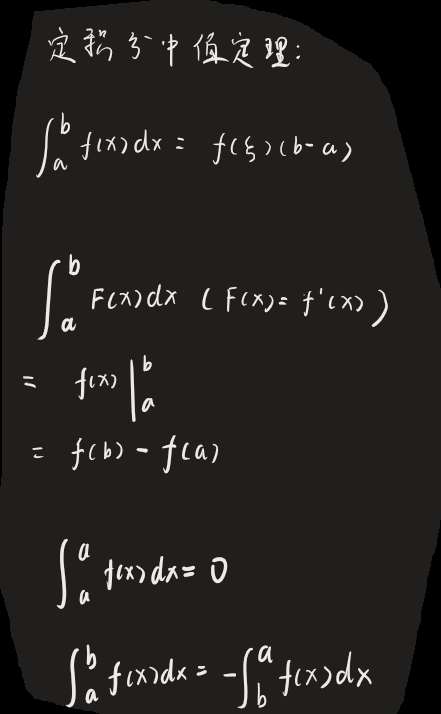 定积分中值定理:
∫_a^b f(x)dx = f(ξ)(b-a)
∫_a^b F(x)dx ( F(x)= f'(x) )
= f(x) |_a^b
= f(b) - f(a)
∫_a^a f(x)dx = 0
∫_a^b f(x)dx = -∫_b^a f(x)dx